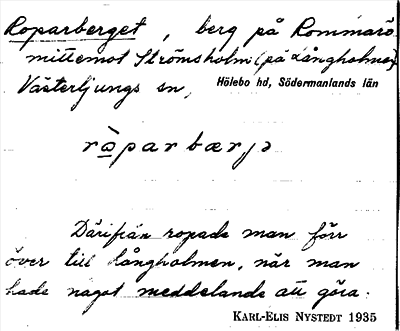 Roparberget, berg på Rommarö
mittemot Strömsholm (på Långholmen)
Västerljungs sn, Hölebo hd, Södermanlands län
ròparbærjə
Därifrån ropade man förr
över till Långholmen, när man
hade något meddelande att göra.
KARL-ELIS NYSTEDT 1935